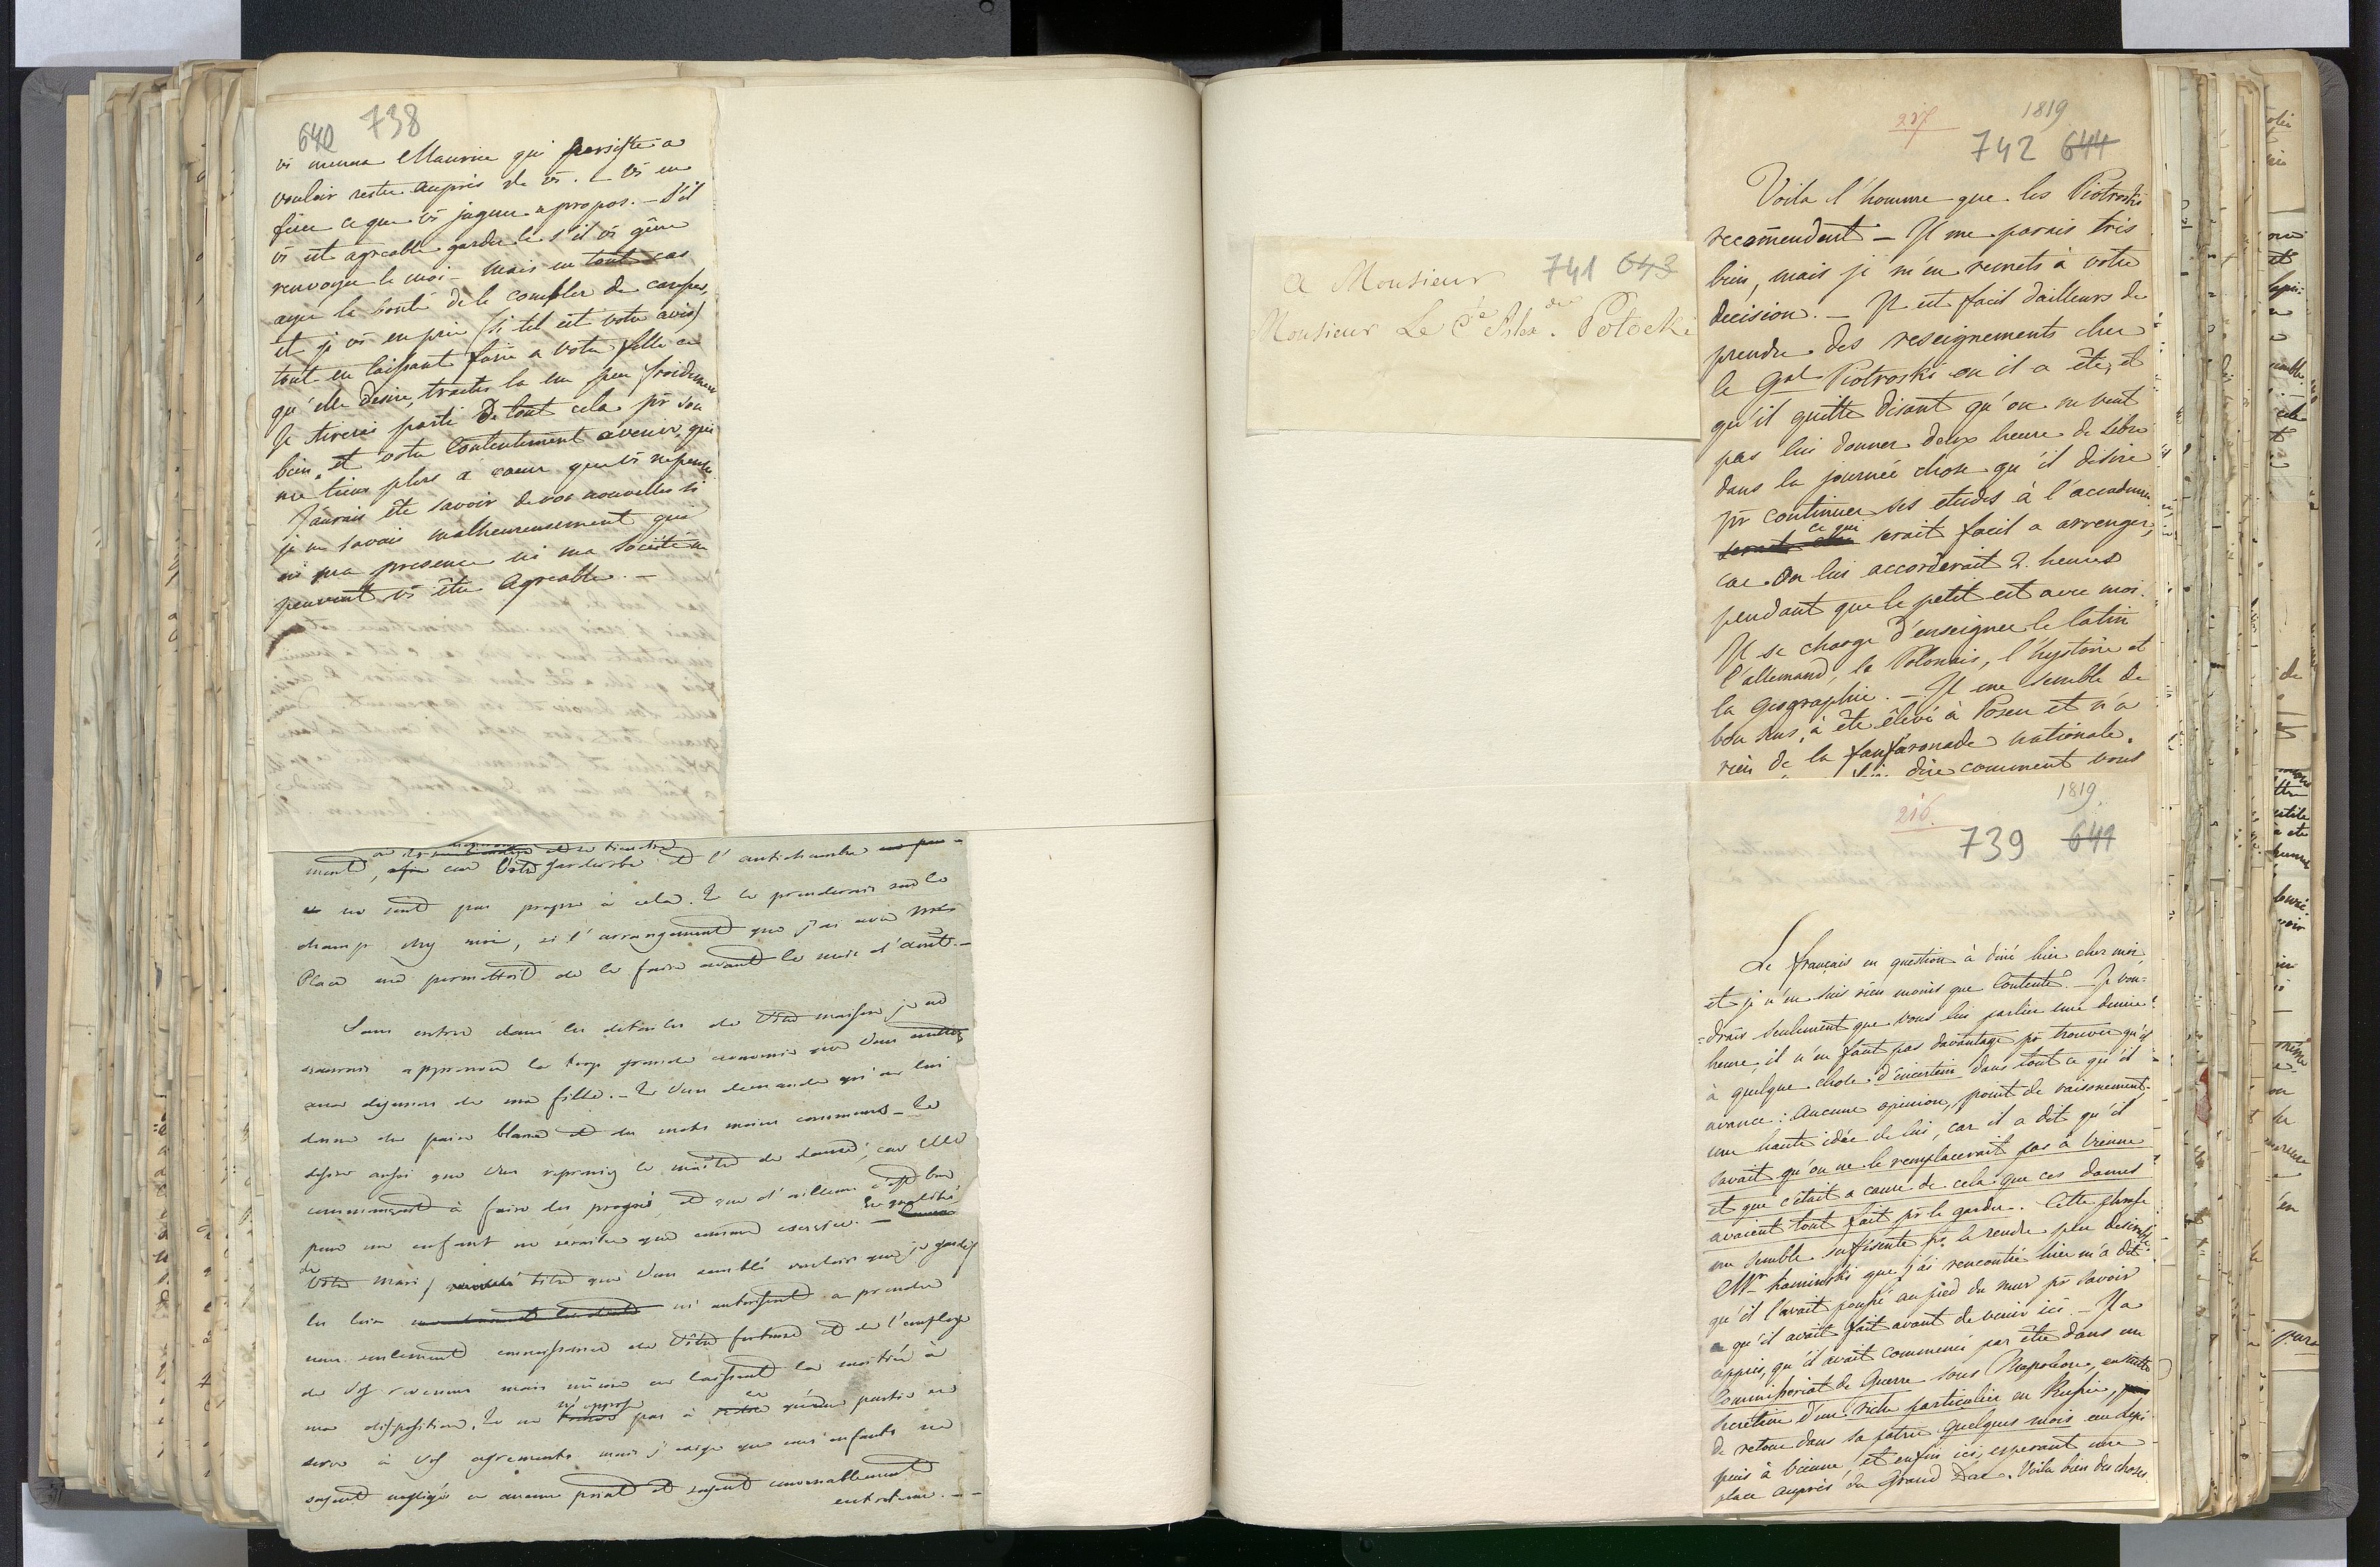 640 738
vs menera Maurice qui persiste a
vouloir rester auprès de vs. – Vs en
ferez ce que vs jugerez a propos. – S'il
vs est agreable gardez le s'il vs gêne
renvoyez le moi – mais en tout cas
ayez la bonté de le combler de caresses,
et je vs en prie (si tel est votre avis)
tout en laissant faire a votre fille ce
qu'elle desire, traitez la un peu froidement
Je tirerai parti de tout cela pr son
bien et votre contentement avenir, qui
me tient plus a coeur que vs ne pensez
J'aurais été savoir de vos nouvelles si
je ne savais malheureusement que
ni ma presence ni ma société ne
peuvent vs être agreable. –
ment, car Votre garderobe et l'antichambre
ne sont pas propre à cela. Je le prenderais sur le
champ chez moi, si l'arrangement que j'ai avec
Place me permettoit de le faire avant le mois d'août. –
Sans entrer dans les details de Votre maison je ne
saurais approuver la trop grande économie que Vous mettez
aux dejeuners de ma fille. – Je Vous demande qu'on lui
donne du pain blanc et des mets moins communs – Je
desire aussi que Vous repreniez le maître de danse, car Elle
commençoit à faire des progrès, et que d'ailleurs c'est bon
pour un enfant ne seroit-ce que comme exercice. – La qualité
de Votre mari, titre que Vous semblé vouloir que je garde,
les loix m'autorisent a prendre
non seulement connoissance de Votre fortune et de l'emploi
de Vos revenus mais même en laissent la moitié à
ma disposition. Je ne m'oppose pas à ce qu'une partie en
serve à Vos agrements mais j'exige que mes enfants ne
soyent negligés en aucun point et soyent convenablement
entretenu. –
741 643
A Monsieur
Monsieur Le Cte Alexdre Potocki
217 1819
742 644
Voila l'homme que les Piotroski
recommendent – Il me parais très
bien, mais je m'en remets à votre
decision. – Il est facil d'ailleurs de
prendre des reseignements chez
le Gal Piotroski ou il a été, et
qu'il quitte disant qu'on ne veut
pas lui donner deux heure de libre
dans la journée chose qu'il desire
pr continuer ses etudes à l'accademie
ce qui serait facil a arrenger,
car on lui accorderait 2. heures
pendant que le petit est avec moi.
Il se charge d'enseigner le latin
l'allemand, le Polonais, l'hystoire et
la geographie. – Il me semble de
bon sens, à été élevé à Posen et n'a
rien de la fanfaronade nationale.
dire comment vous
216. 1819.
739 641
Le français en question à diné hier chez moi
et je n'en suis rien moins que contente. – Je vou=
=drais seulement que vous lui parliez une demie
heure, il n'en faut pas davantage pr trouver qu'il
à quelque chose d'incertein dans tout ce qu'il
avance: Aucune opinion, point de raisonement,
une haute idée de lui, car il a dit qu'il
savait qu'on ne le remplacerait pas à Vienne
et que c'était a cause de cela que ces dames
avaient tout fait pr le garder. Cette phrase
me semble suffisente pr le rendre peu desirable.
Mr Kaminski que j'ai rencontré hier m'a dit
qu'il l'avait poussé au pied du mur pr savoir
ce qu'il avait fait avant de venir ici. – Il a
appris, qu'il avait commencé par être dans un
Commissariat de Guerre sous Napoleon, ensuite
Secretaire d'un riche particulier en Russie,
de retour dans sa patrie quelques mois
puis à Vienne et enfin ici, esperant une
place auprès du Grand Duc. Voila bien des choses